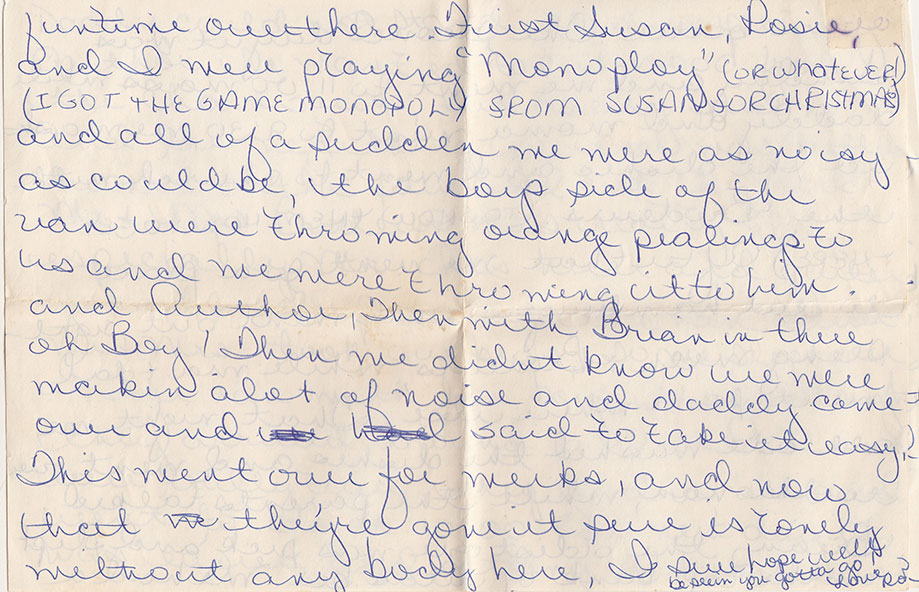 funtime over there. First Susan, Rosie,
and I were playing "Monoploy" (OR WHATEVER!)
(I GOT THE GAME MONOPOLY FROM SUSAN FOR CHRISTMAS)
and all of a sudden we were as noisy
as could be, the boys side of the
van were throwing orange pealings to
us and we were throwing it to him.
and Author, Then with Brian in there
oh Boy! Then we didnt know we were
makin alot of noise and daddy came
over and said to take it easy!
This went over for weeks, and now
that they're gone it sure is lonely
without any body here, I sure hope well
be seein you gotta go!
Love Ro